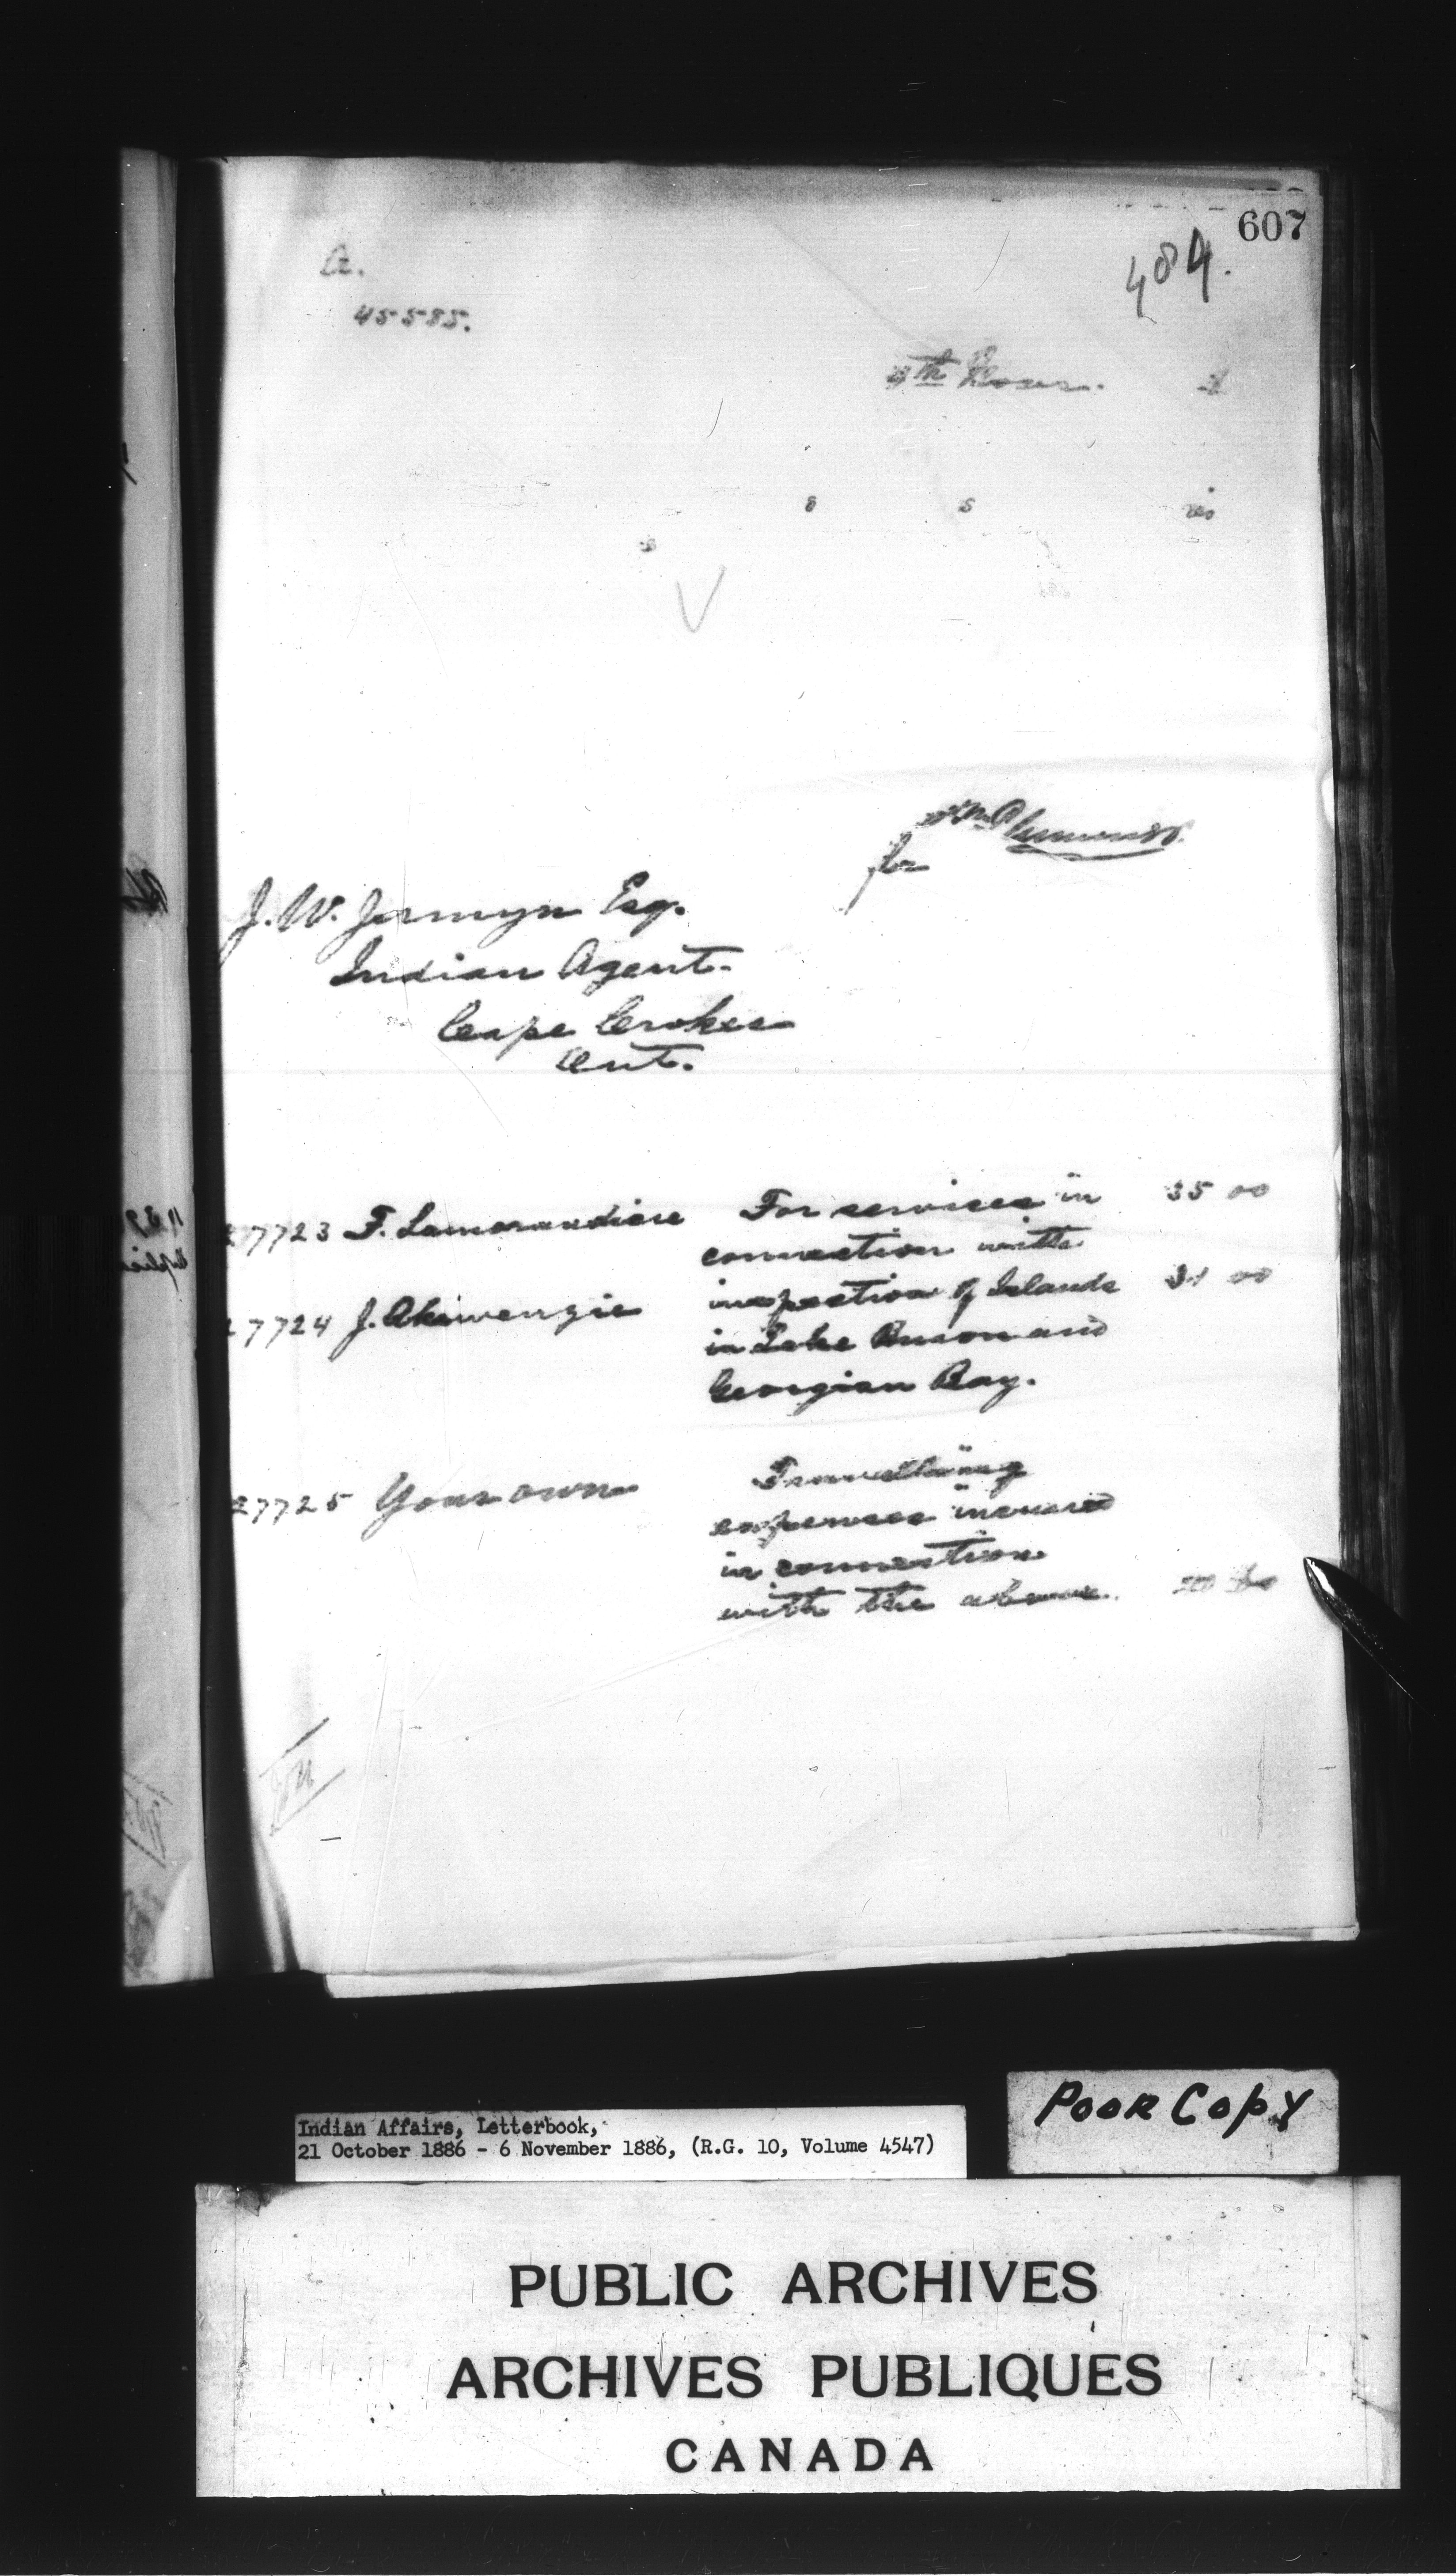 607
484.
A.
45585.
4th Novr.
J. W. Jermyn Esq.
Indian Agent.
Cape Croker
Ont.
for
27723 F. Lamorandiere For services in 35 00
connection with
27724 J. Akiwenzie inspection of Islands 31 00
in Lake Huron and
Georgian Bay.
27725 Your own Travelling
expenses incurred
in connection
with the above.
Indian Affairs, Letterbook,
21 October 1886 - 6 November 1886, (R.G. 10, Volume 4547)
POOR COPY
PUBLIC ARCHIVES
ARCHIVES PUBLIQUES
CANADA